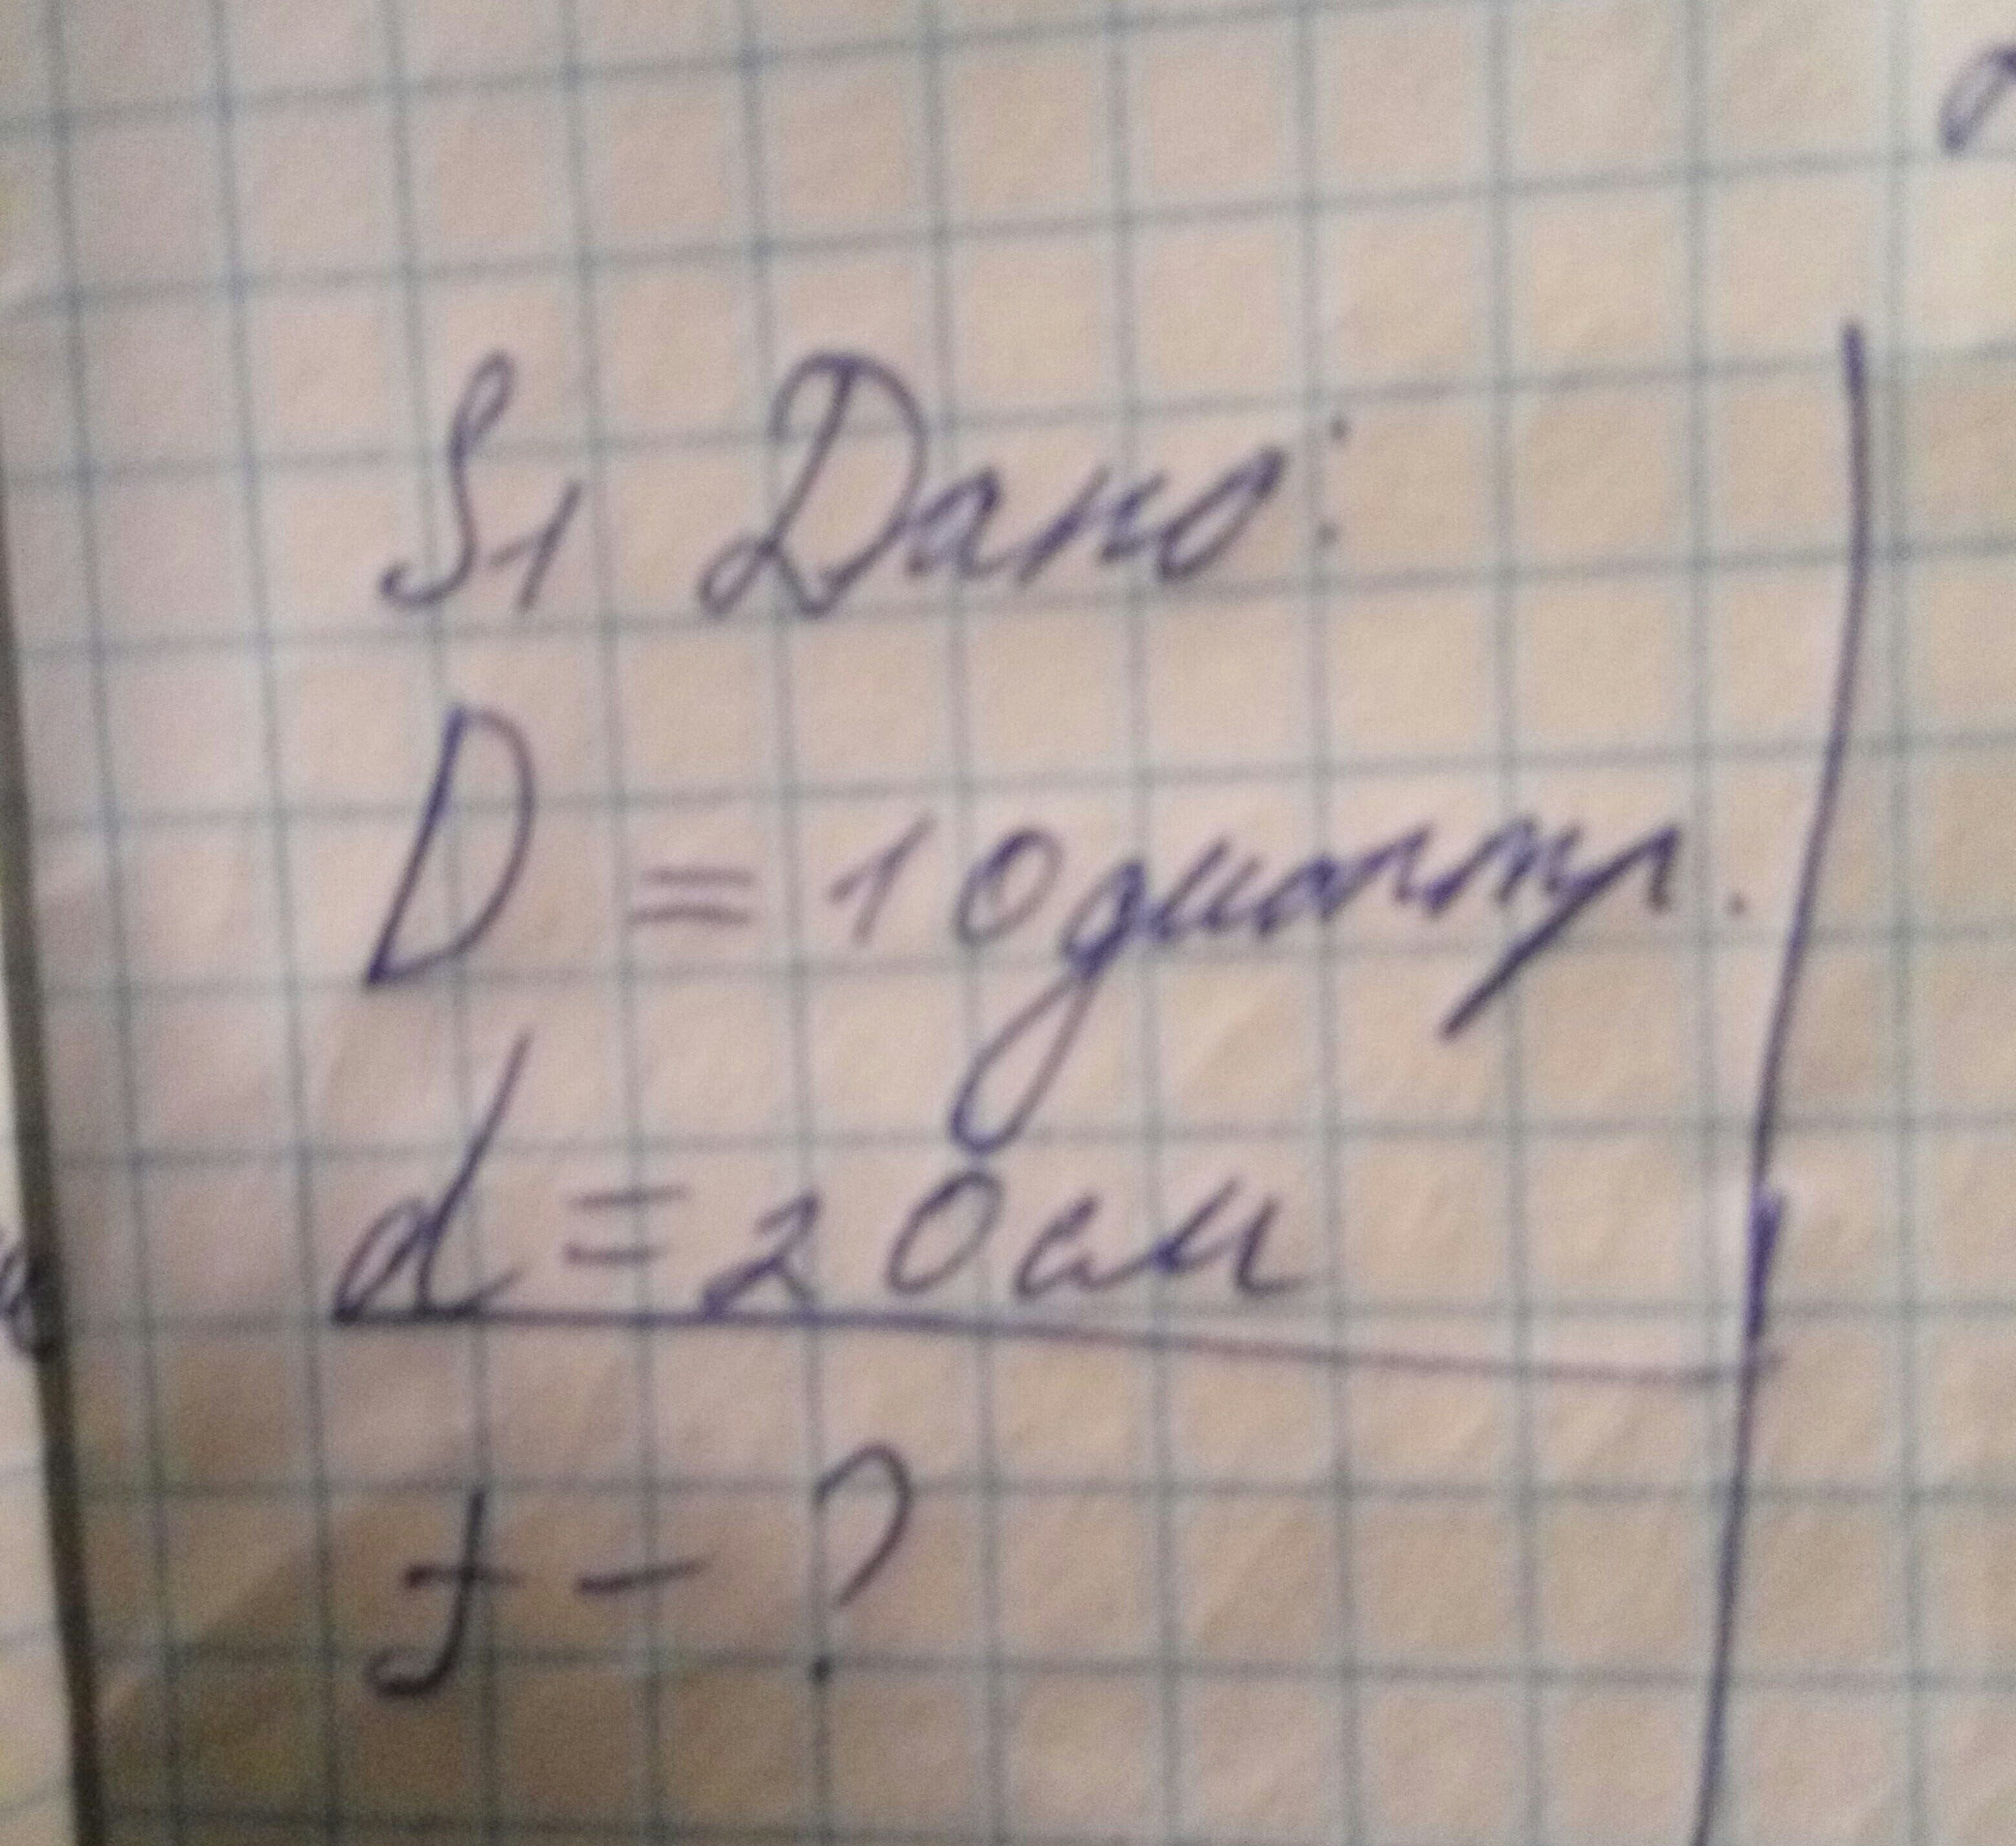 S1 Дано:
D = 10 диоптр.
d = 20 см
f - ?